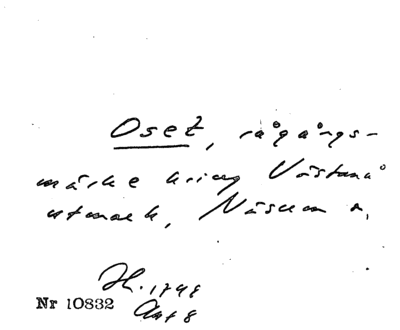 Oset, rågångs-
märke kring Västanå
utmark, Näsum s.
H. 1748
Akt 8
Nr 10832